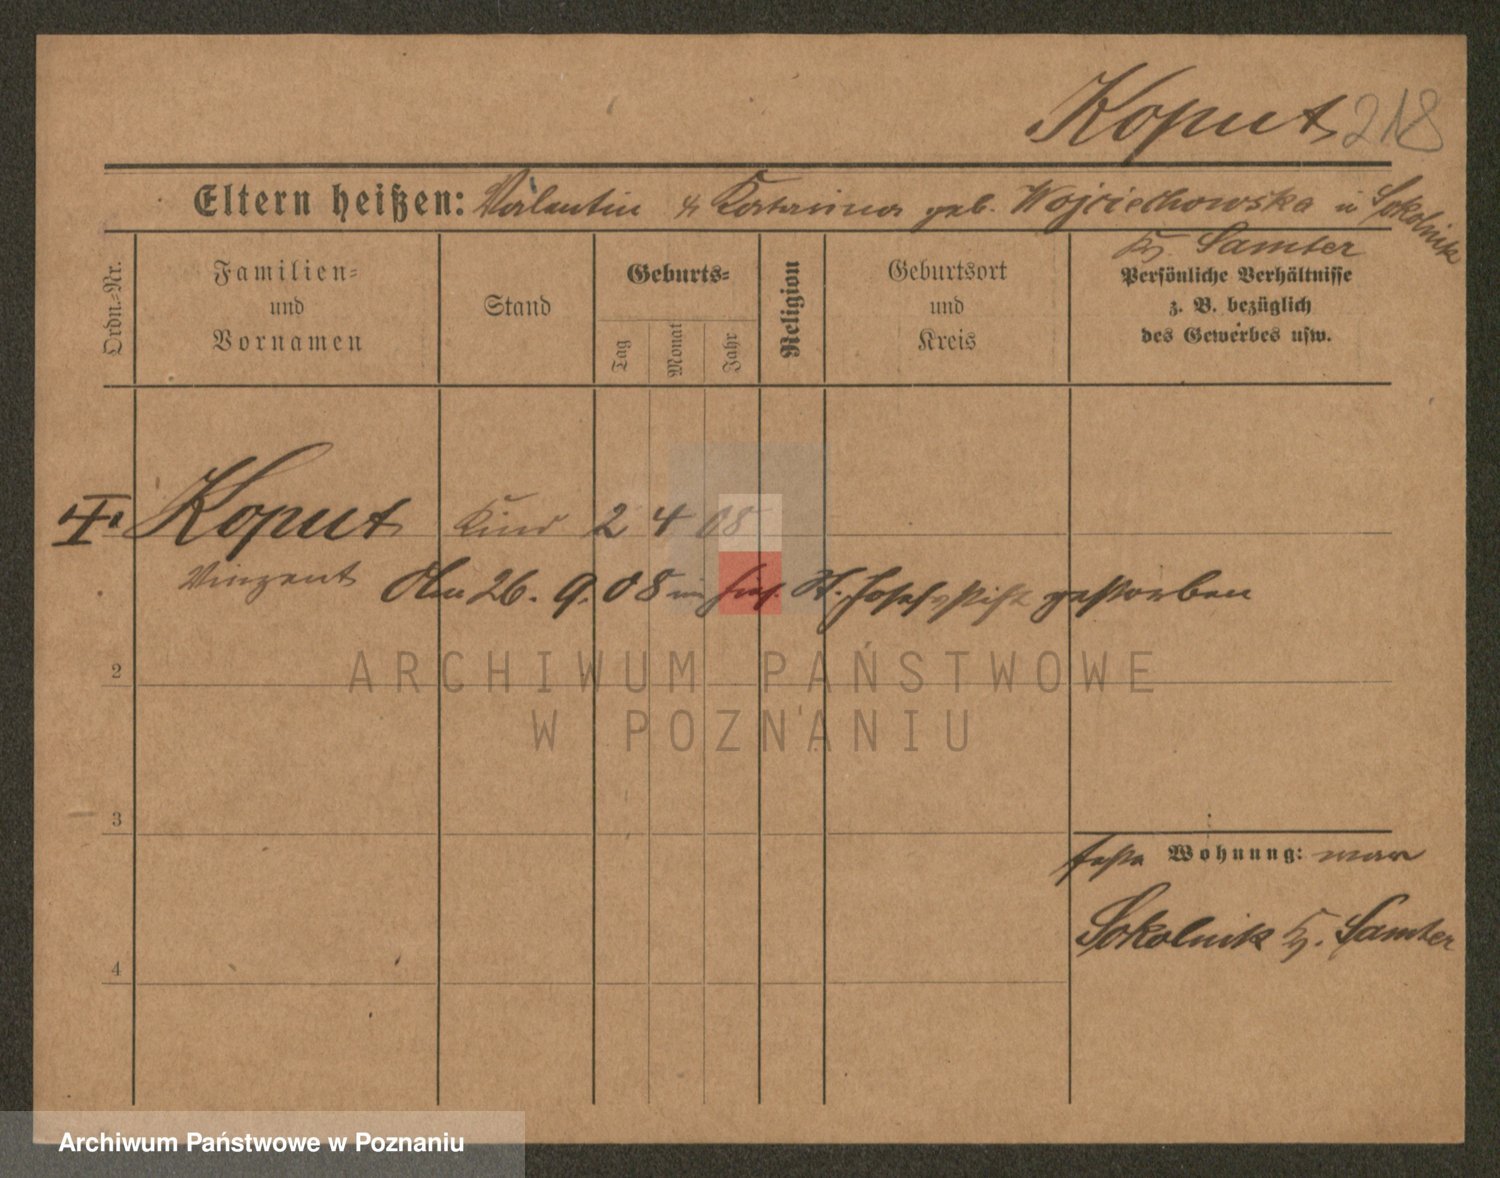 Koput 218
Eltern heißen: Valentin & Katarina geb. Wojciechowska in Sokolnik
Kr. Samter
Ordn.-Nr.
Familien-
und
Vornamen
Stand
Geburts-
Tag
Monat
Jahr
Religion
Geburtsort
und
Kreis
Persönliche Verhältnisse
z. B. bezüglich
des Gewerbes usw.
Koput Kind 2 4 08
Vinzent Am 26. 9. 08 im St. Josefsstift gestorben
ARCHIWUM PAŃSTWOWE
W POZNANIU
2
3
4
Wohnung: war
Sokolnik Kr. Samter
Archiwum Państwowe w Poznaniu